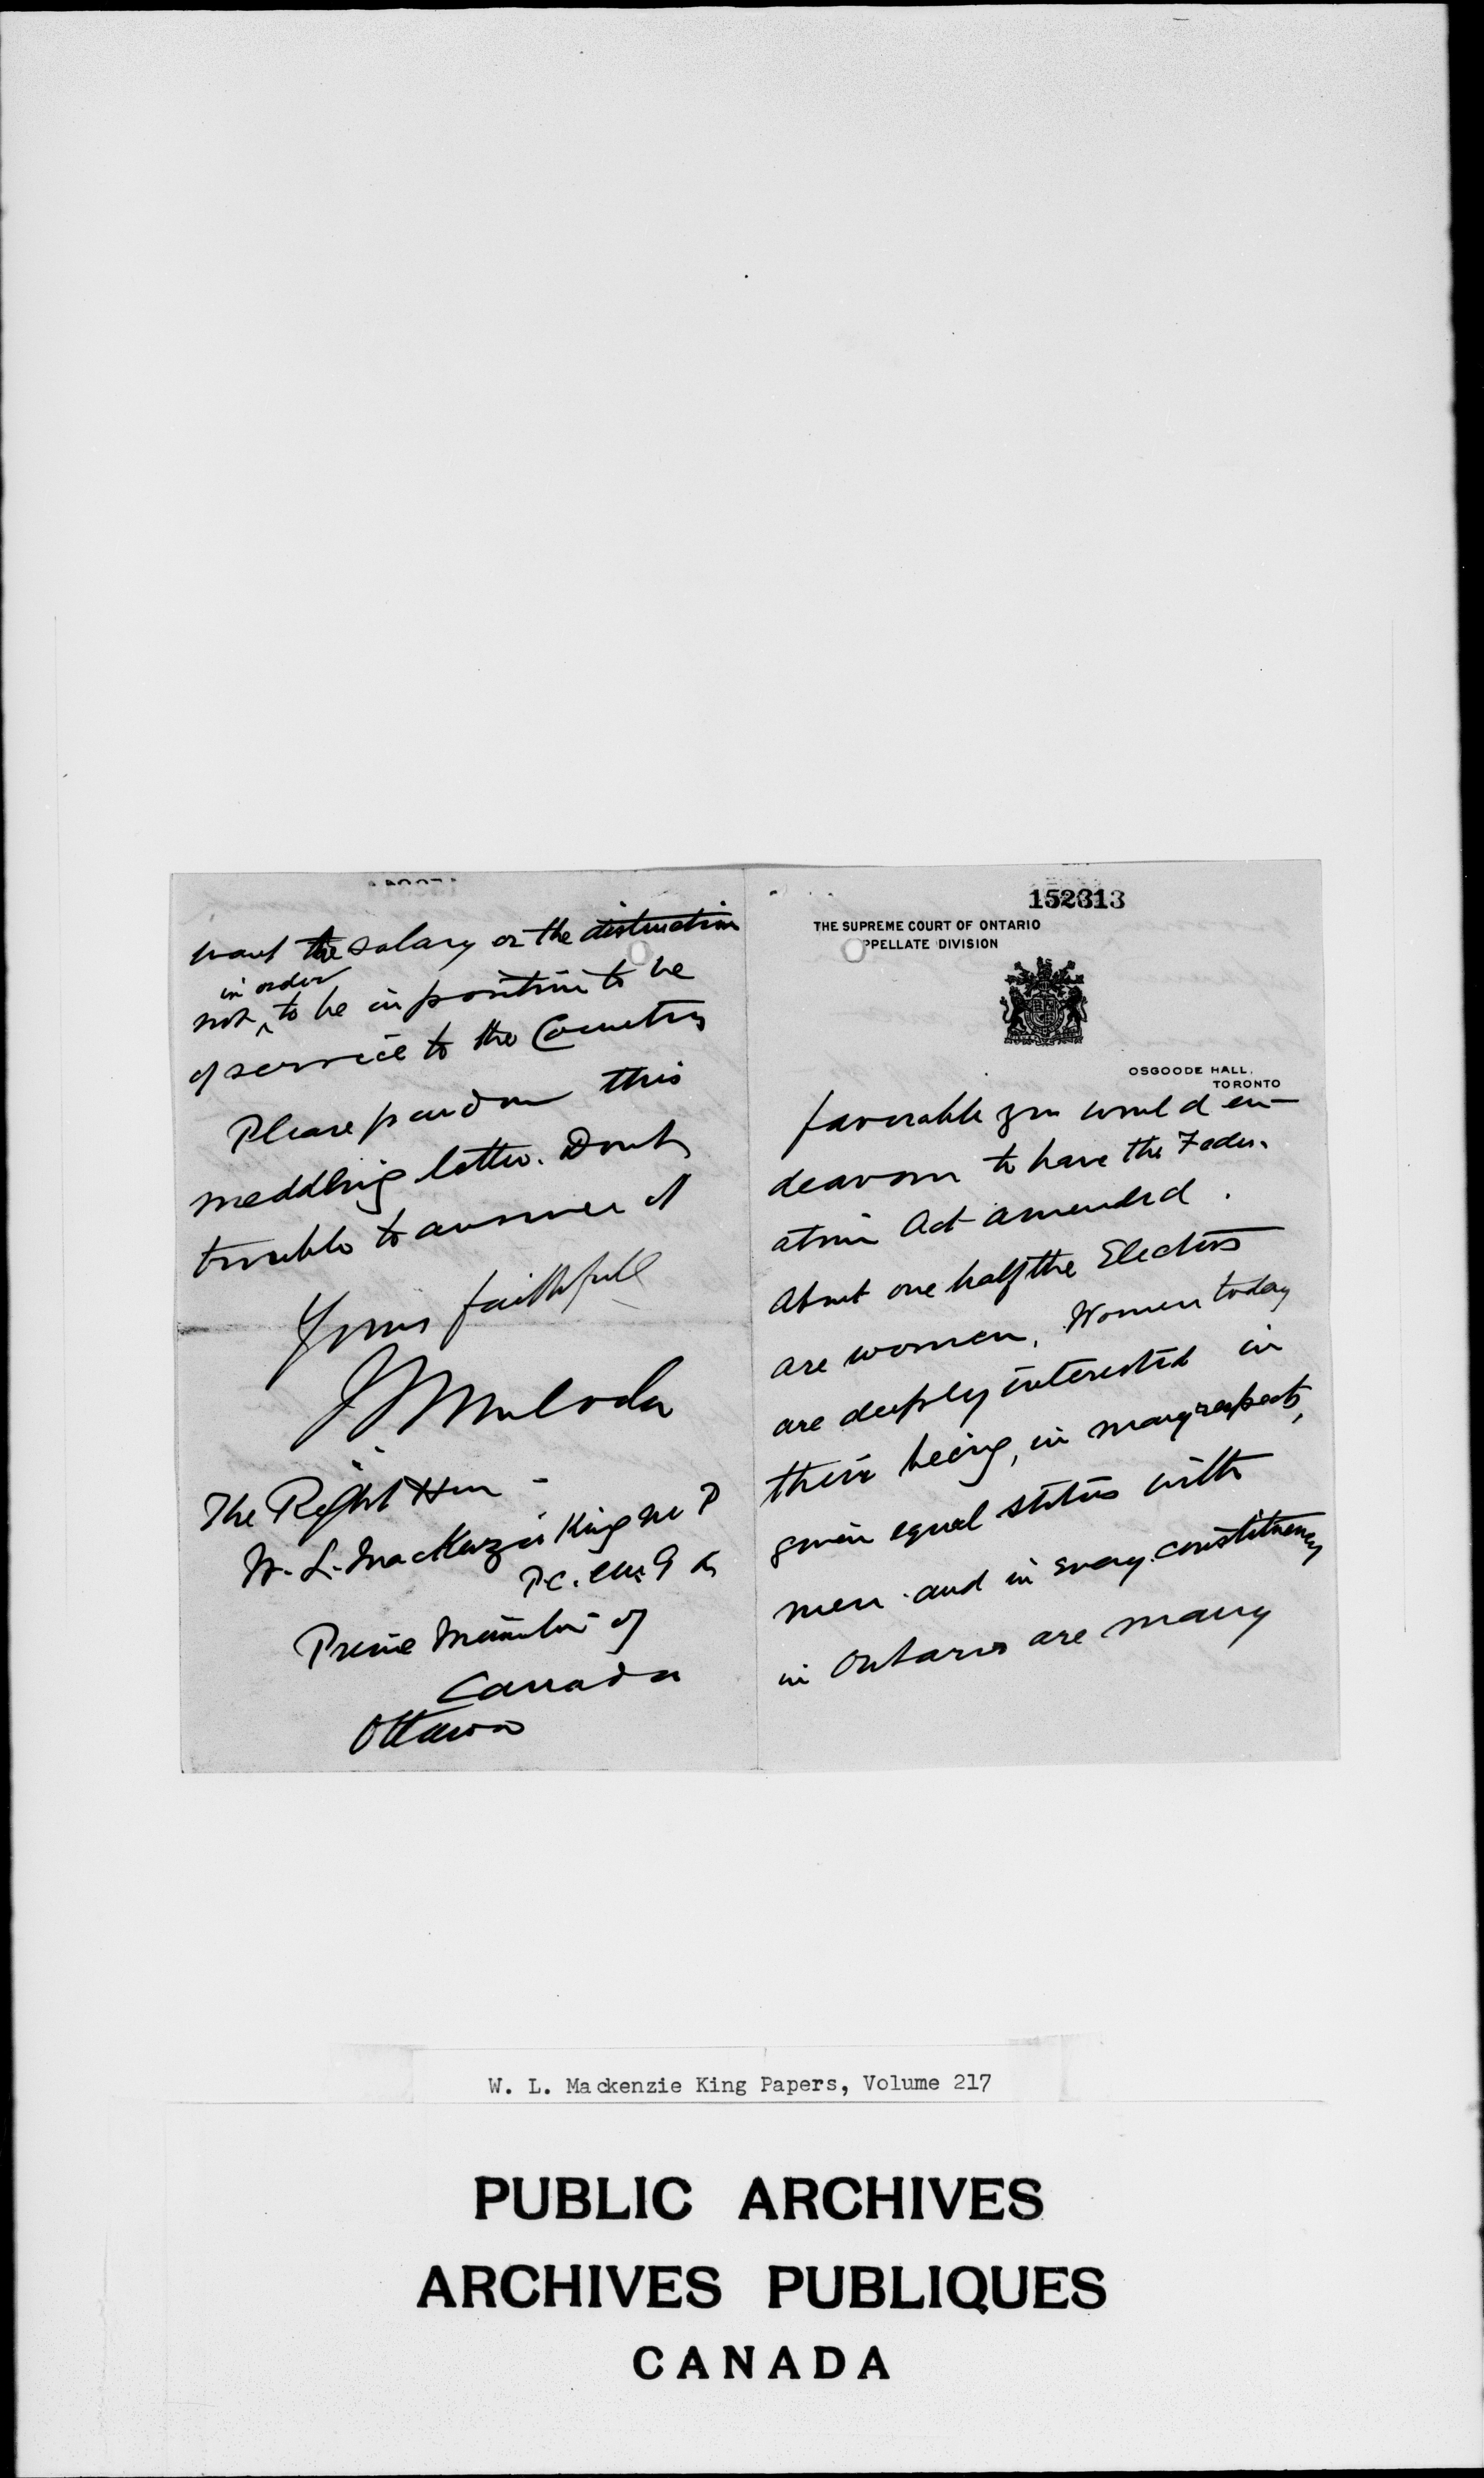 want the salary or the distinction
in order
not to be in position to be
of service to the Country
Please pardon this
meddling letter. Dont
trouble to answer it
Yours faithfull
Mulock
The Right Hon
W. L. MacKenzie King M P
P.C. C M G
Prime Minister of
Canada
Ottawa
152313
THE SUPREME COURT OF ONTARIO
PPELLATE DIVISION
OSGOODE HALL,
TORONTO
favorable you would en-
deavour to have the Feder-
ation Act amended.
About one half the Electors
are women, Women today
are deeply interested in
their being, in many respects,
given equal status with
men and in every constituency
in Ontario are many
W. L. Mackenzie King Papers, Volume 217
PUBLIC ARCHIVES
ARCHIVES PUBLIQUES
CANADA